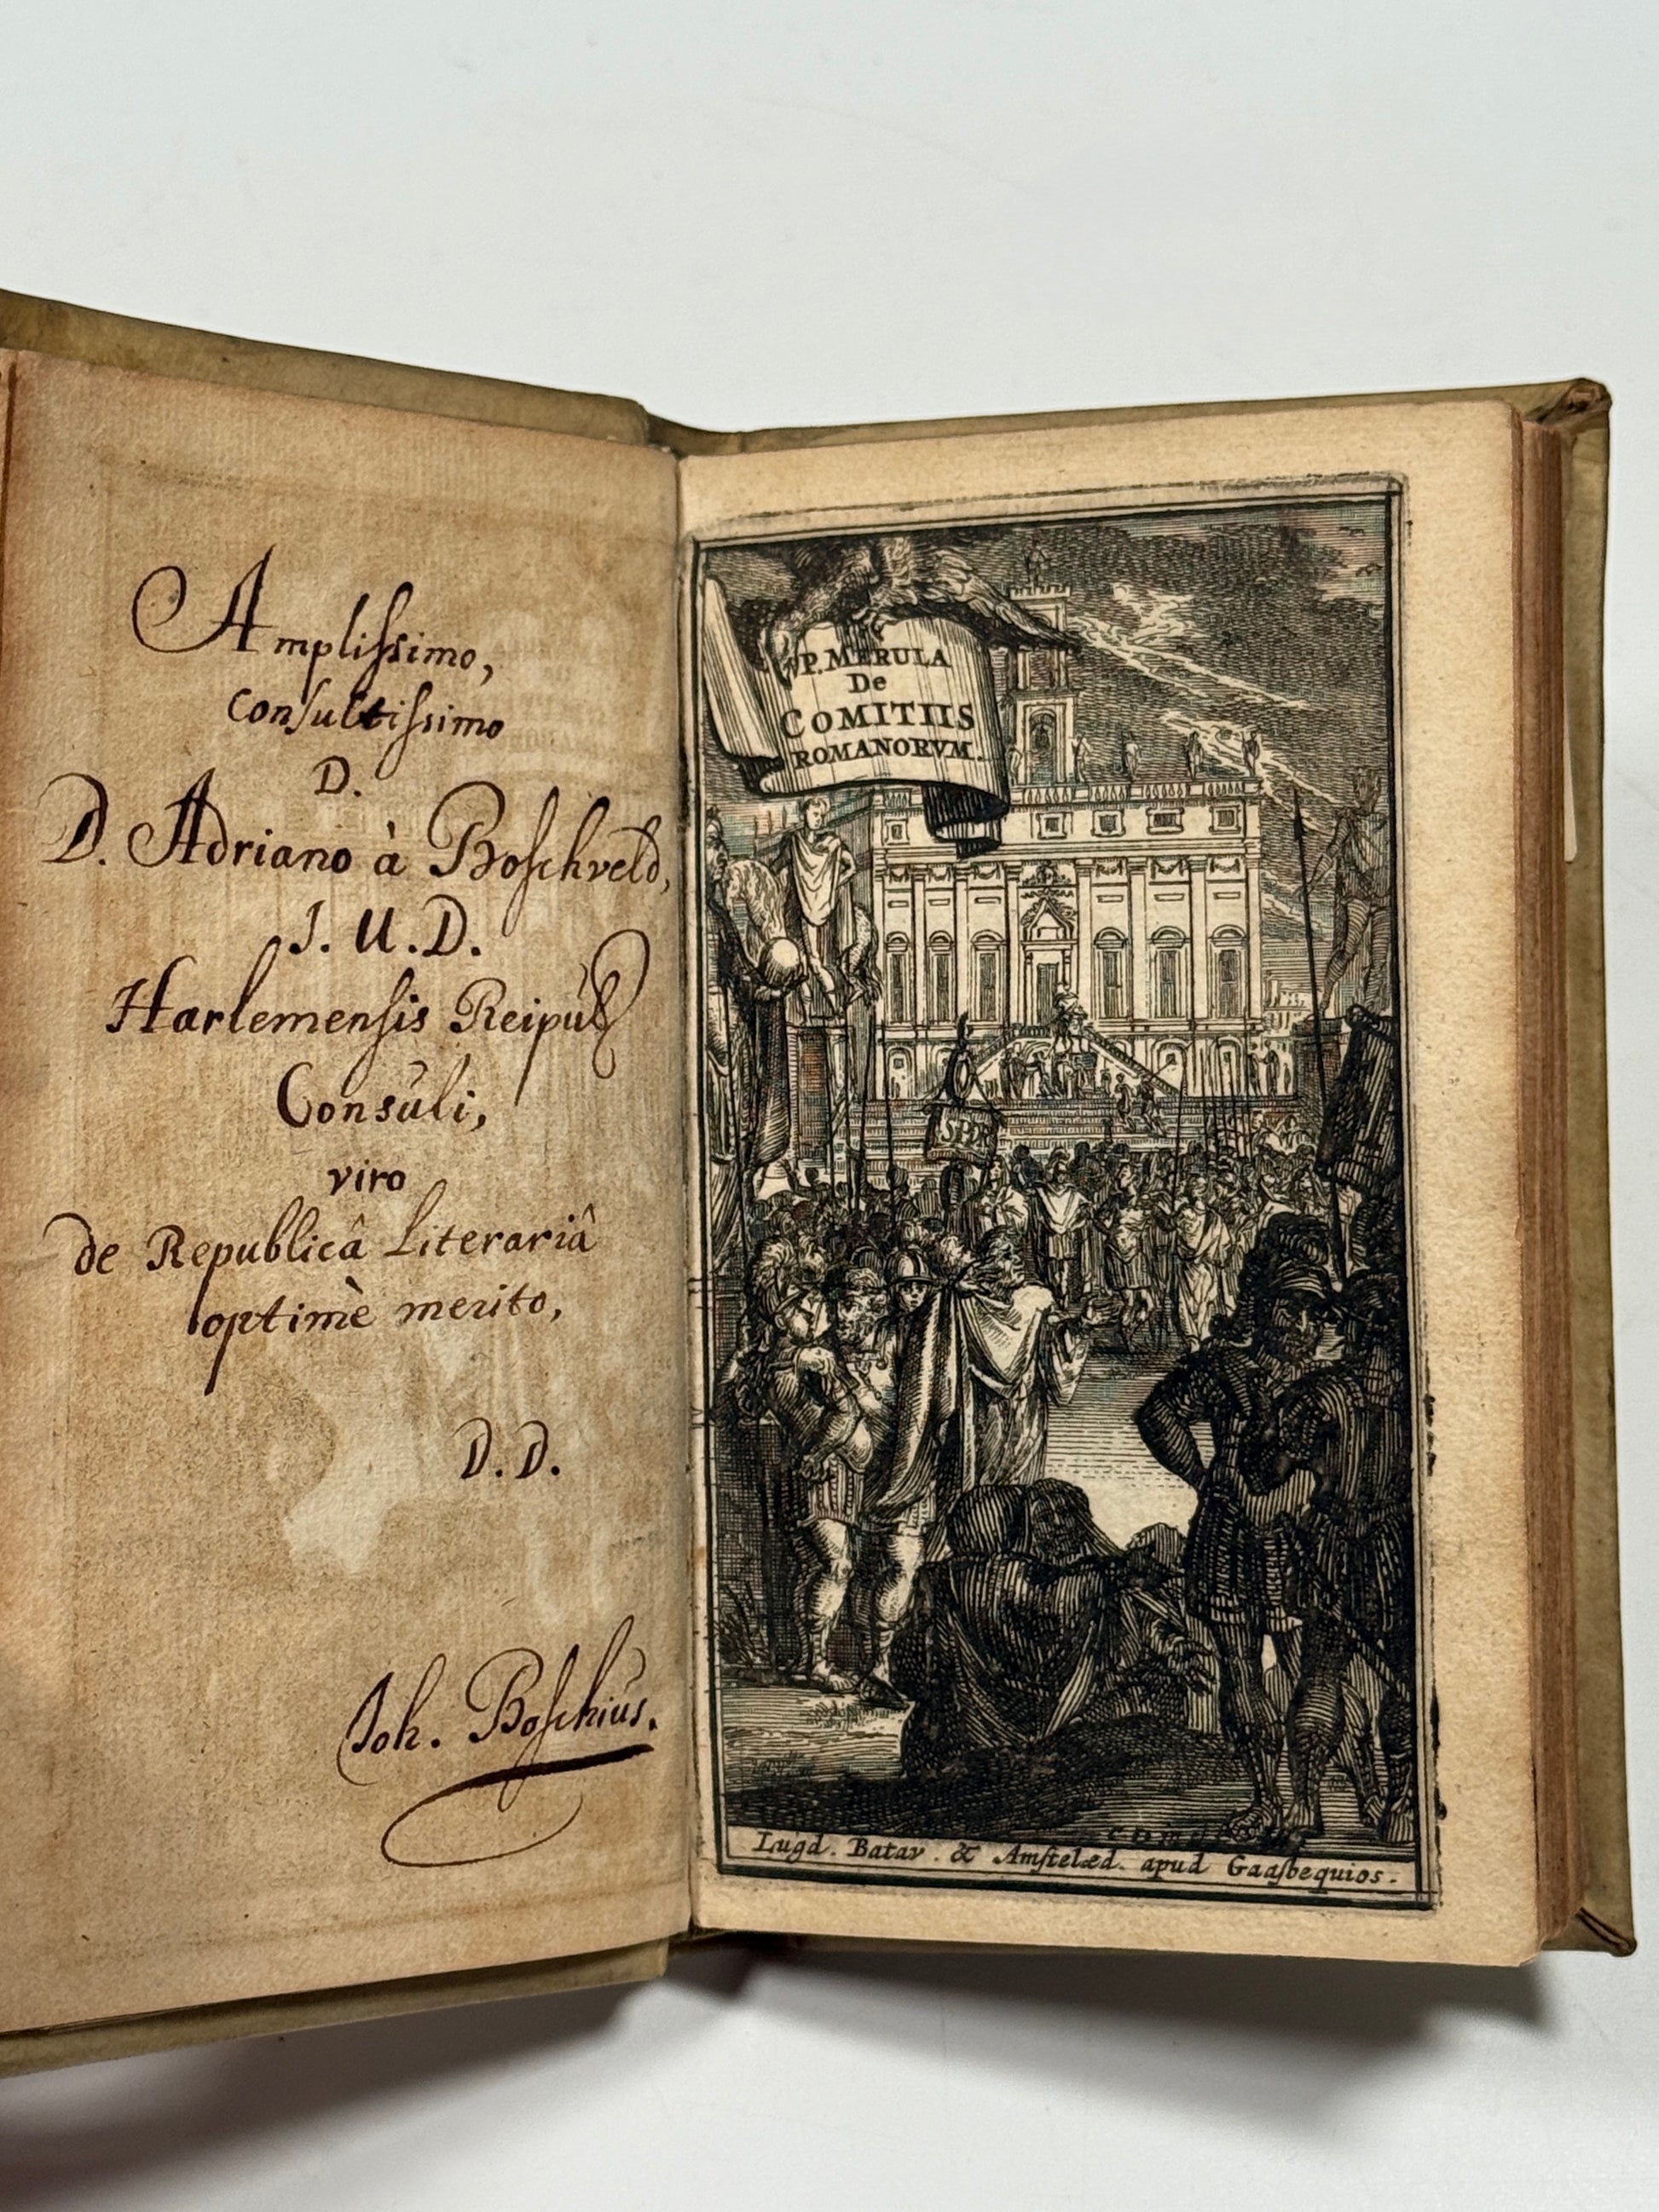 Ampliſsimo,
Conſultiſsimo
D.
D. Adriano à Boſchveld,
J. U. D.
Harlemenſis Reipúb
Consúli,
viro
de Republicâ Literariâ
optimè merito,
D. D.
Joh. Boſchiús.
P. MERULA
De
COMITIIS
ROMANORVM.
SPQR
Lugd. Batav. & Amſtelæd. apud Gaaſbequios.